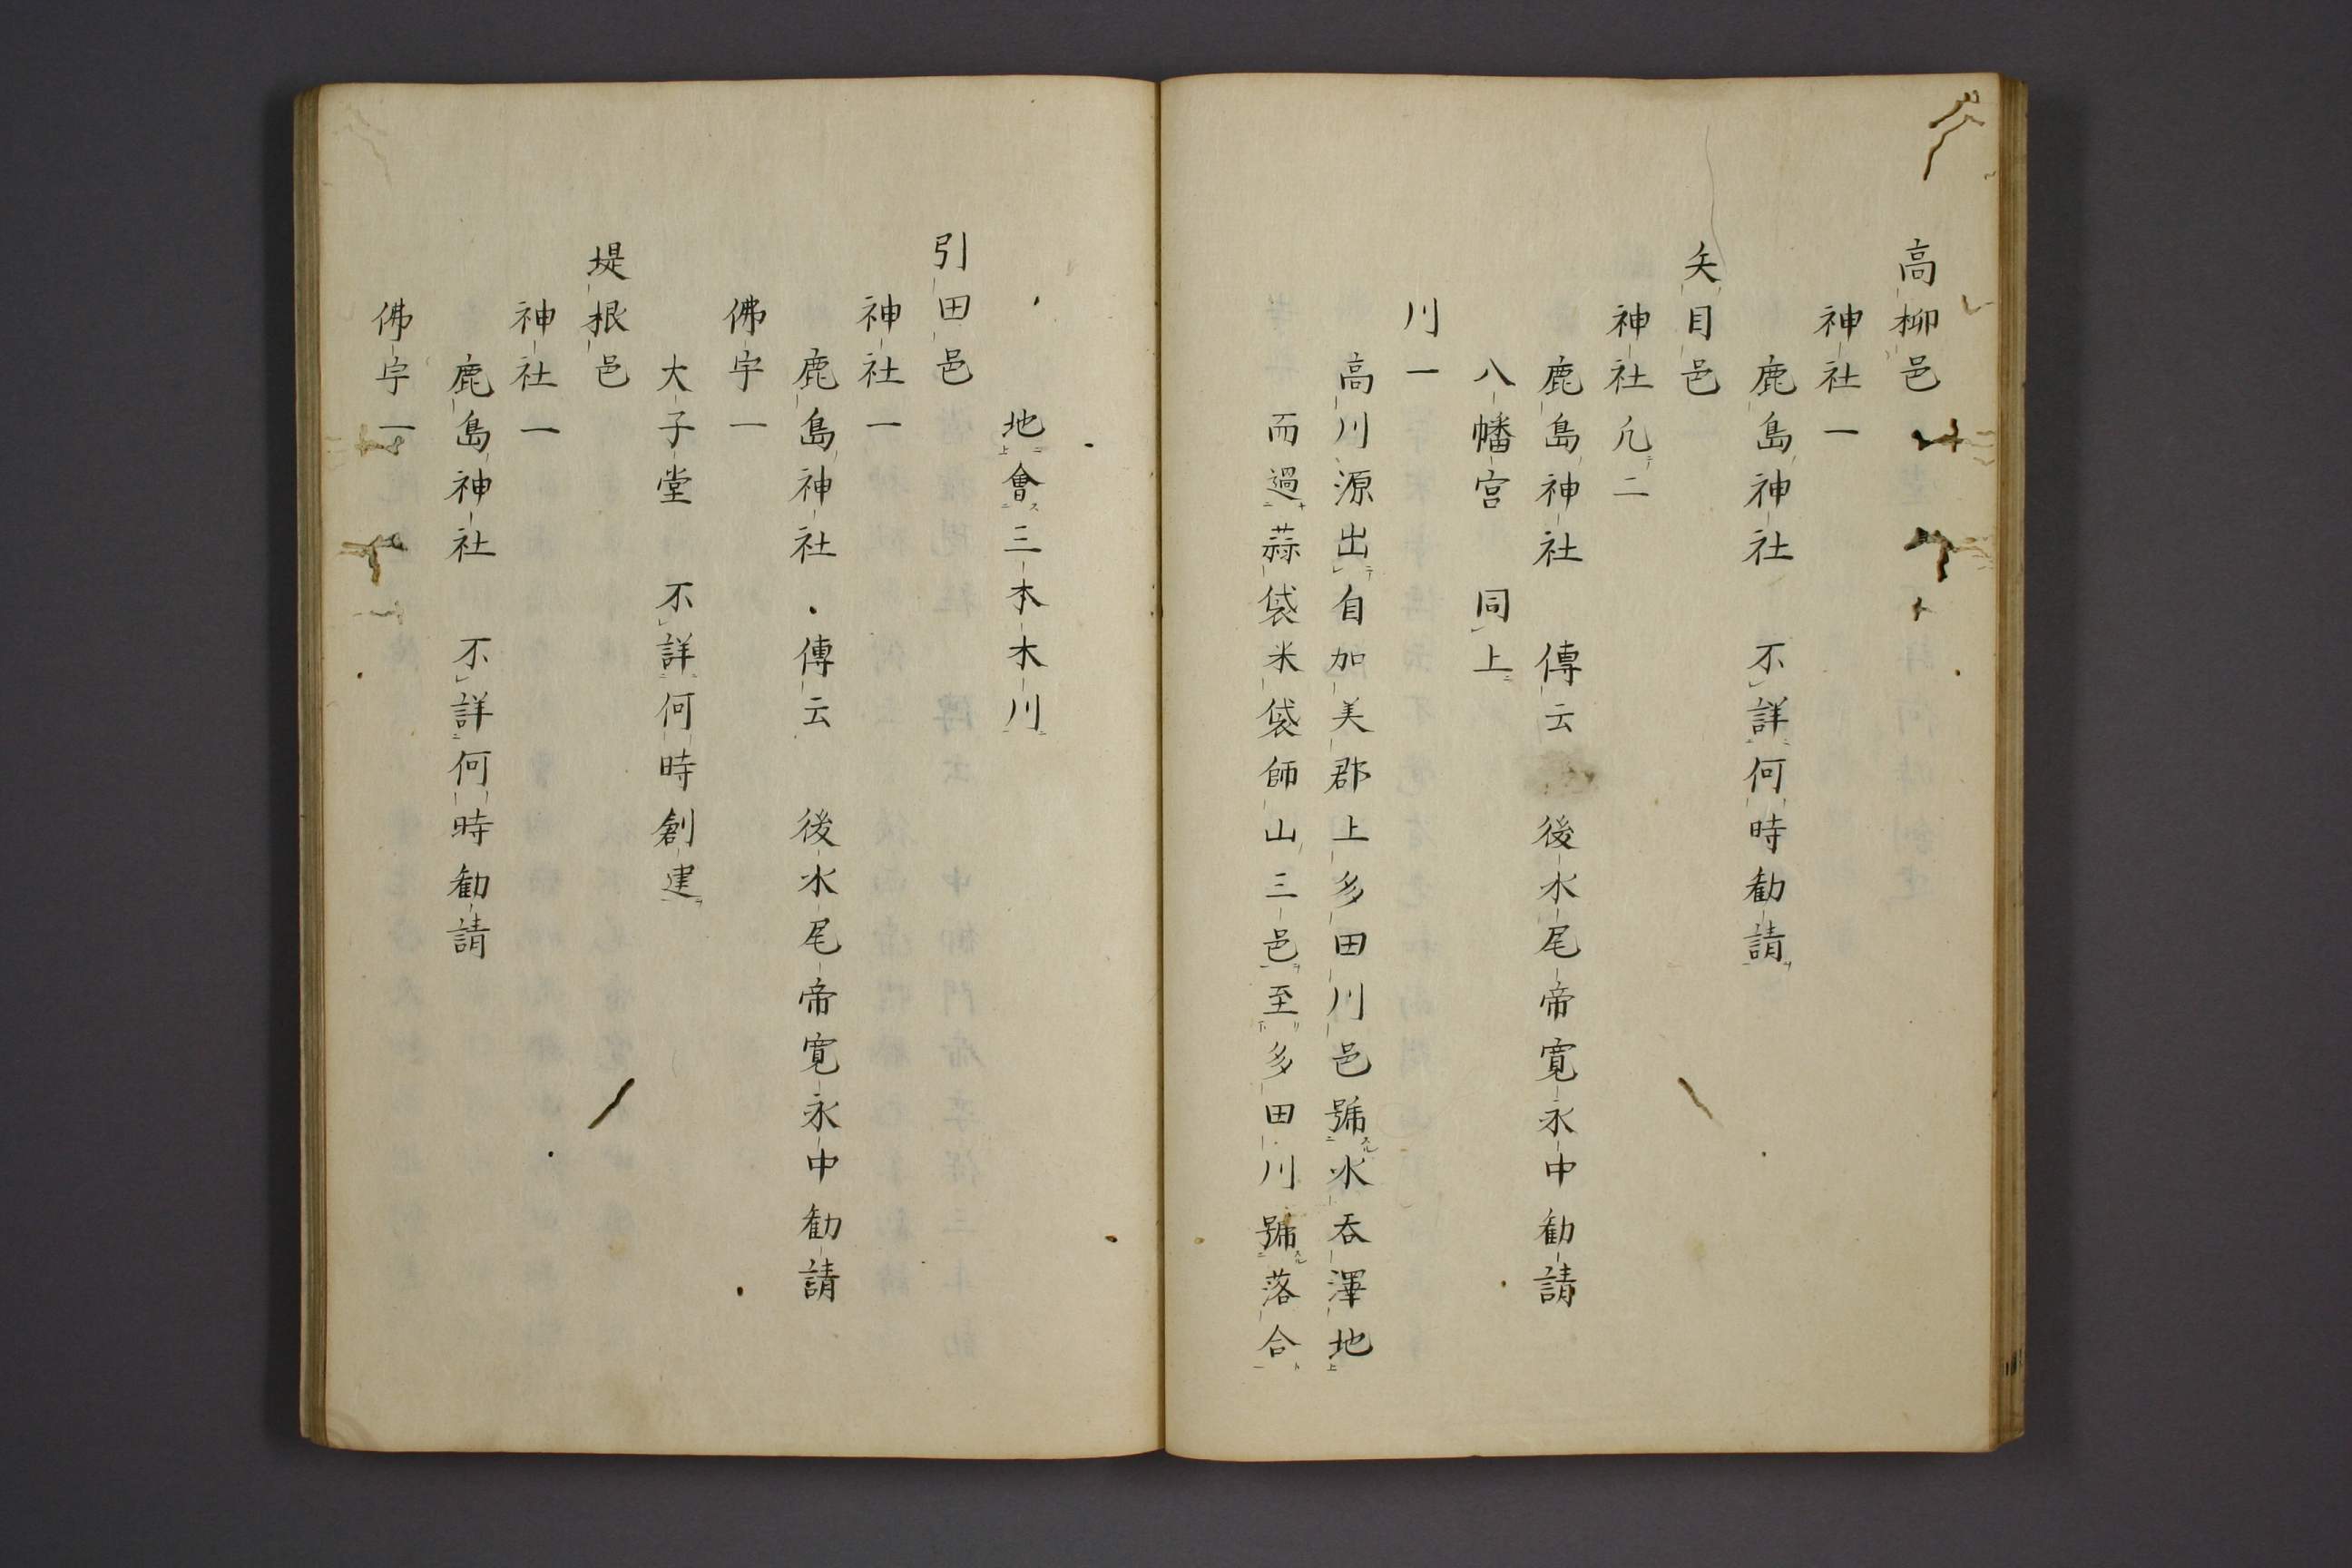 高柳邑
神社一
鹿島神社　不詳何時勧請
矢目邑
神社凢二
鹿島神社　傳云　後水尾帝寛永中勧請
八幡宮　同上
川一
高川源出自加美郡上多田川邑號水呑澤地
而過蒜袋米袋師山三邑至多田川號落合
地會三本木川
引田邑
神社一
鹿島神社　傳云　後水尾帝寛永中勧請
佛宇一
大子堂　不詳何時創建
堤根邑
神社一
鹿島神社　不詳何時勧請
佛宇一